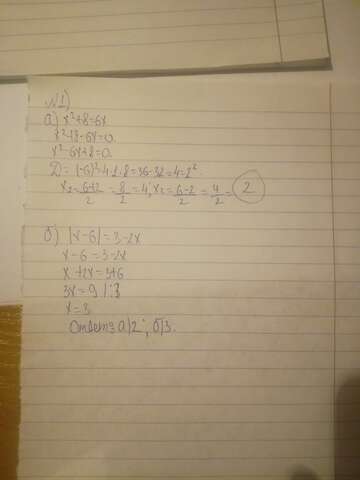 №1)
а) x²+8=6x
x²+8-6x=0.
x²-6x+8=0.
Д=(-6)²-4·1·8=36-32=4=2².
x₁=6+2/2=8/2=4; x₂=6-2/2=4/2=2
б) |x-6|=3-2x
x-6=3-2x
x+2x=3+6
3x=9 |:3
x=3
Ответ: а) 2; б) 3.